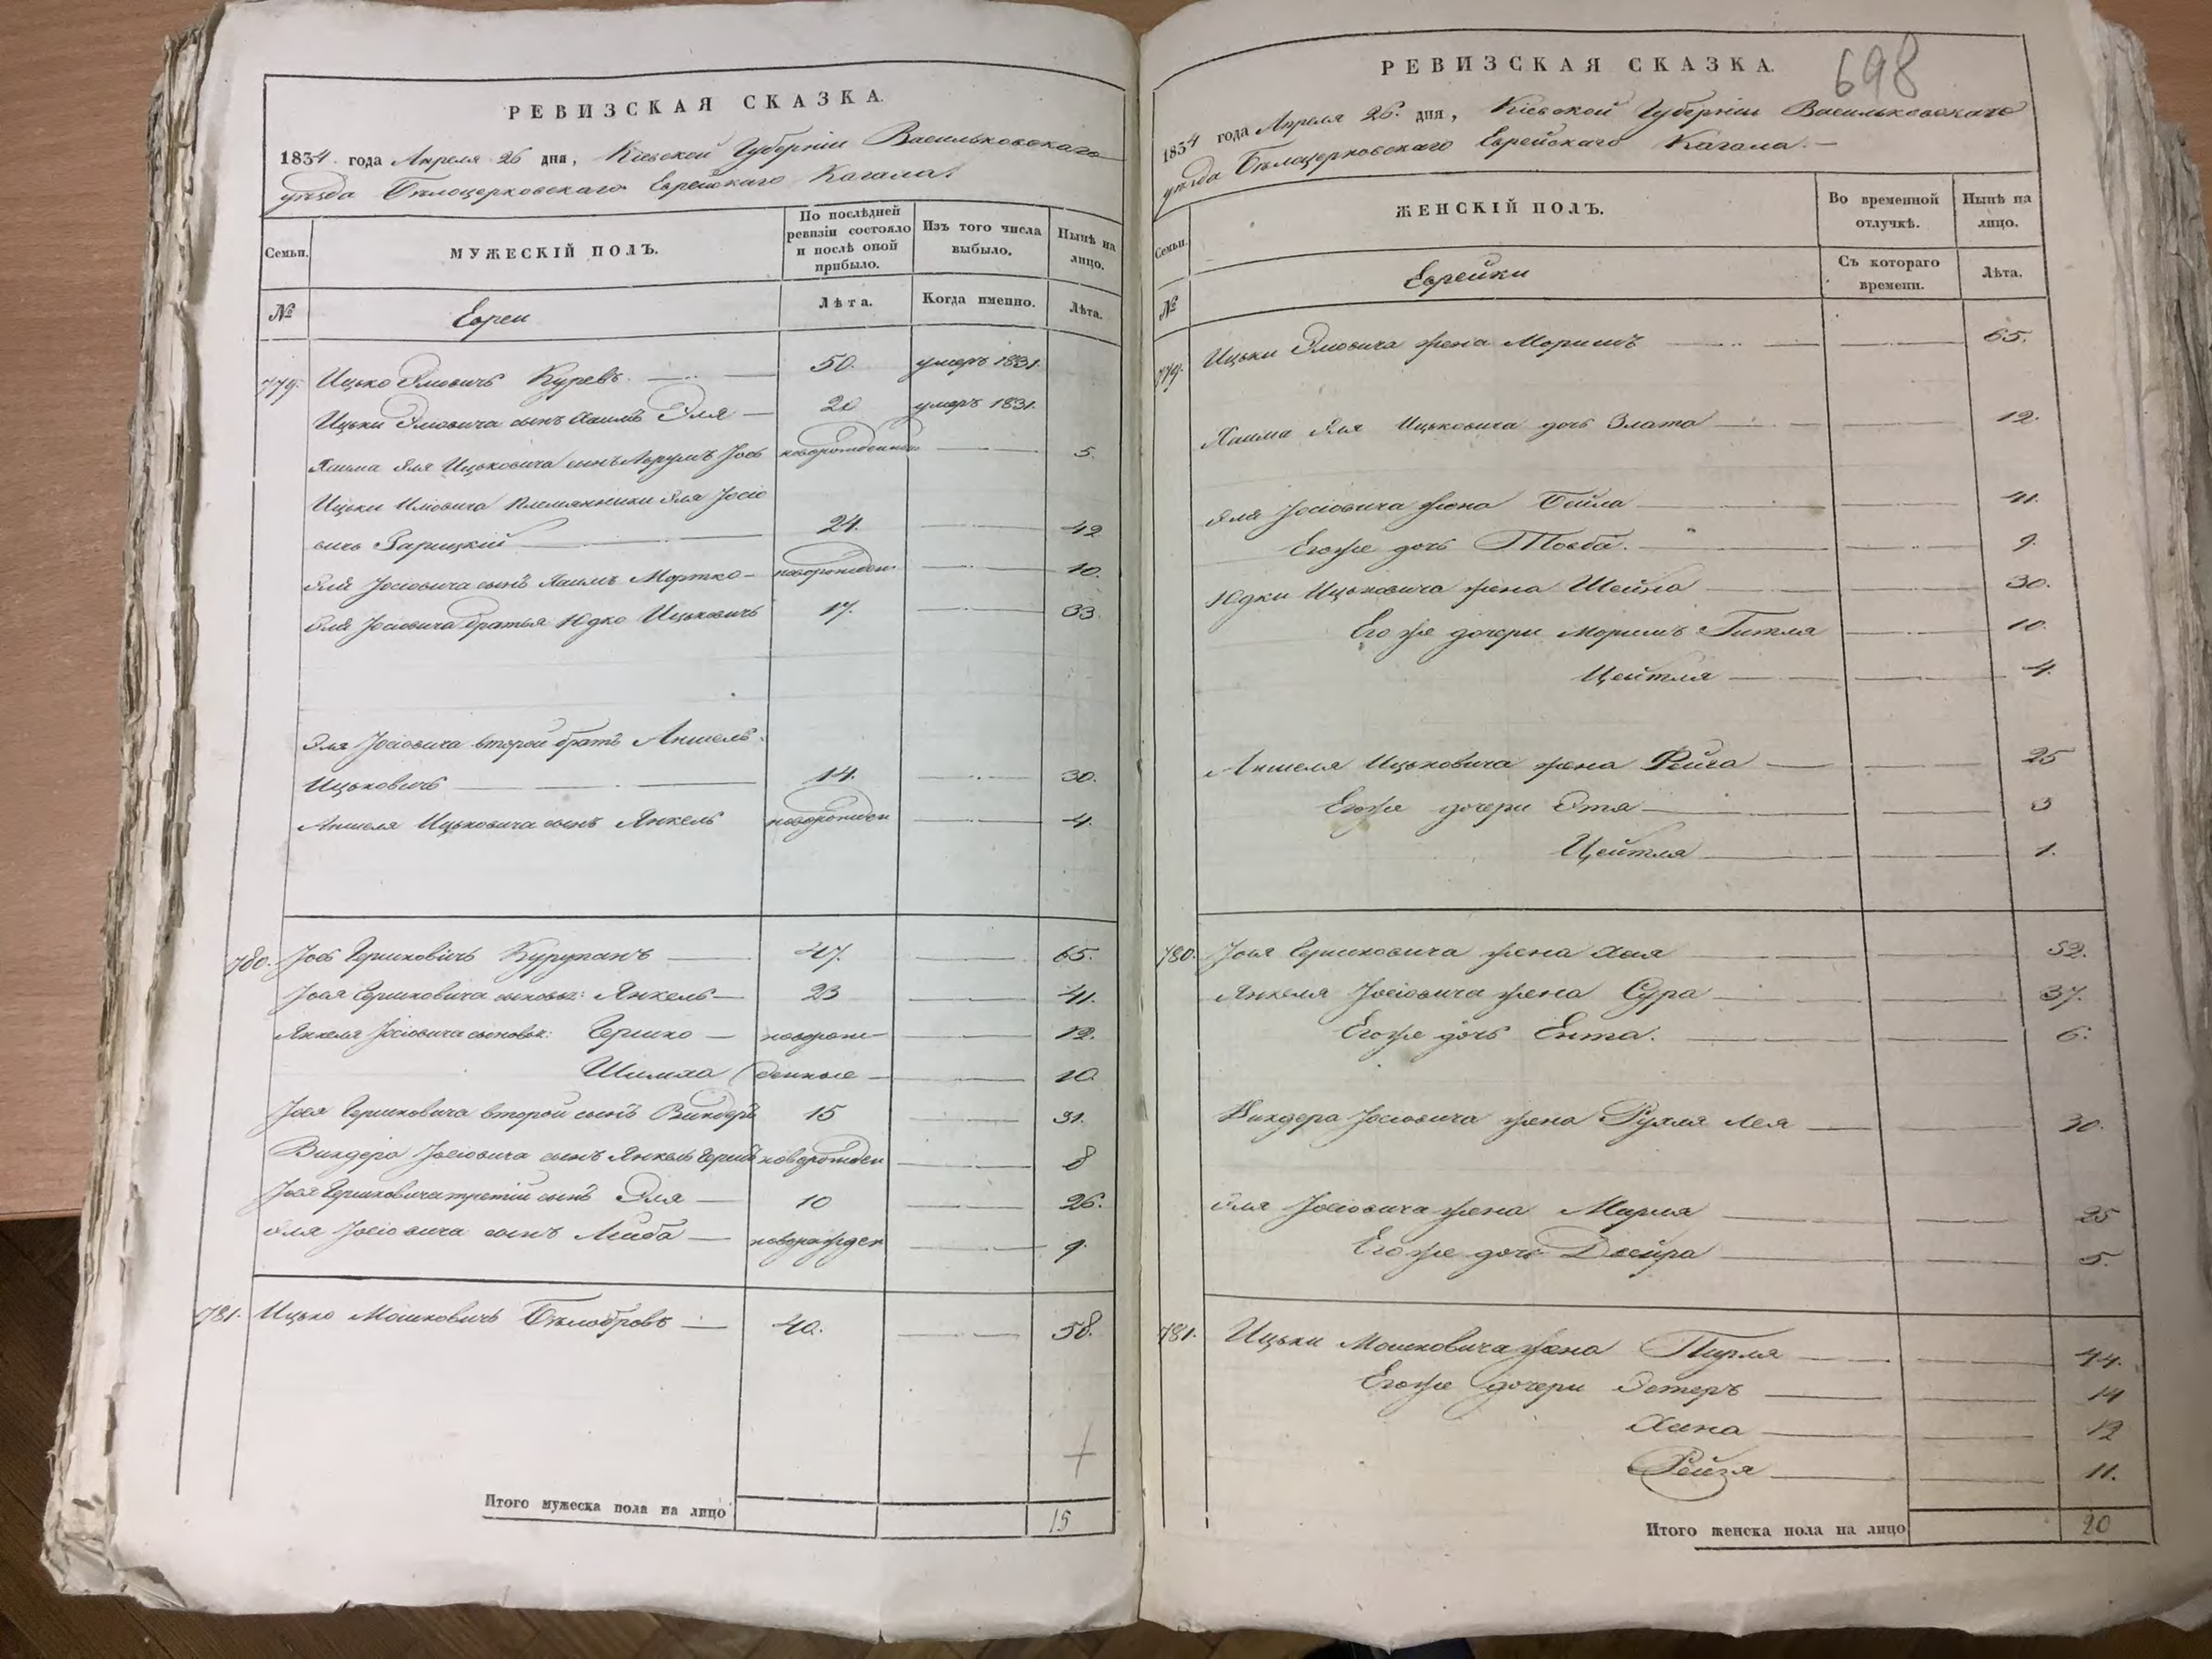 РЕВИЗСКАЯ СКАЗКА.
1834 года Апреля 26 дня, Кіевской Губерніи Васильковскаго
уѣзда Бѣлоцерковскаго Еврейскаго Кагала.
Семьи.
МУЖЕСКІЙ ПОЛЪ.
По послѣдней ревизіи состояло и послѣ оной прибыло.
Изъ того числа выбыло.
Нынѣ на лицо.
№
Евреи
Лѣта.
Когда именно.
Лѣта.
779. Ицько Эліовичъ 50. умеръ 1831.
Ицьки Эліовича сынъ Хаимъ Эля 20 умеръ 1831.
Хаима Эля Ицьковича сынъ Аврумъ Іось новорожденный 5.
Ицьки Иліовича племянники Эля Іосіо
вичь 24. 42
Эли Іосіовича сынъ Хаимъ Мортко новорожден. 10.
Эли Іосіовича братья Юдко Ицьковичъ 17. 33.
Эля Іосіовича второй брат Аншель
Ицьковичъ 14. 30.
Аншеля Ицьковича сынъ Янкель новорожден 4.
780. Іось Гершковичъ 47. 65.
Іося Гершковича сыновья: Янкель 23 41.
Янкеля Іосіовича сыновья: Гершко новорож- 12.
Шимха денные 10.
Іося Гершковича второй сынъ Виндеръ 15 31.
Виндера Іосіовича сынъ Янкель Гершъ новорожден 8
Іося Гершковича третій сынъ Эля 10 26.
Эля Іосіовича сынъ Лейба новорожден 9.
781. Ицько Мошковичъ Бѣлобровъ 40. 58.
Итого мужеска пола на лицо 15
698
РЕВИЗСКАЯ СКАЗКА.
1834 года Апреля 26. дня, Кіевской Губерніи Васильковскаго
уѣзда Бѣлоцерковскаго Еврейскаго Кагала.
Семьи.
ЖЕНСКІЙ ПОЛЪ.
Во временной отлучкѣ.
Нынѣ на лицо.
№
Еврейки
Съ котораго времени.
Лѣта.
779. Ицьки Эліовича жена Моримъ 65.
Хаима Эля Ицьковича дочь Злата 12.
Эля Іосіовича жена Бейла 41.
Его же дочь Товба. 9.
Юдки Ицьковича жена Шейна 30.
Его же дочери Моримъ Гитля 10.
Цейтля 4.
Аншеля Ицьковича жена Фейга 25
Его же дочери Эта 3
Цейтля 1.
780. Іося Гершковича жена Хая 52.
Янкеля Іосіовича жена Сура 37.
Его же дочь Ента. 6.
Виндера Іосіовича жена Рухля Лея 30.
Эля Іосіовича жена Марля 25
Его же дочь Двейра 5.
781. Ицьки Мошковича жена Пирля 44.
Его же дочери Эстеръ 14
Хина 12
Рейзя 11.
Итого женска пола на лицо 20